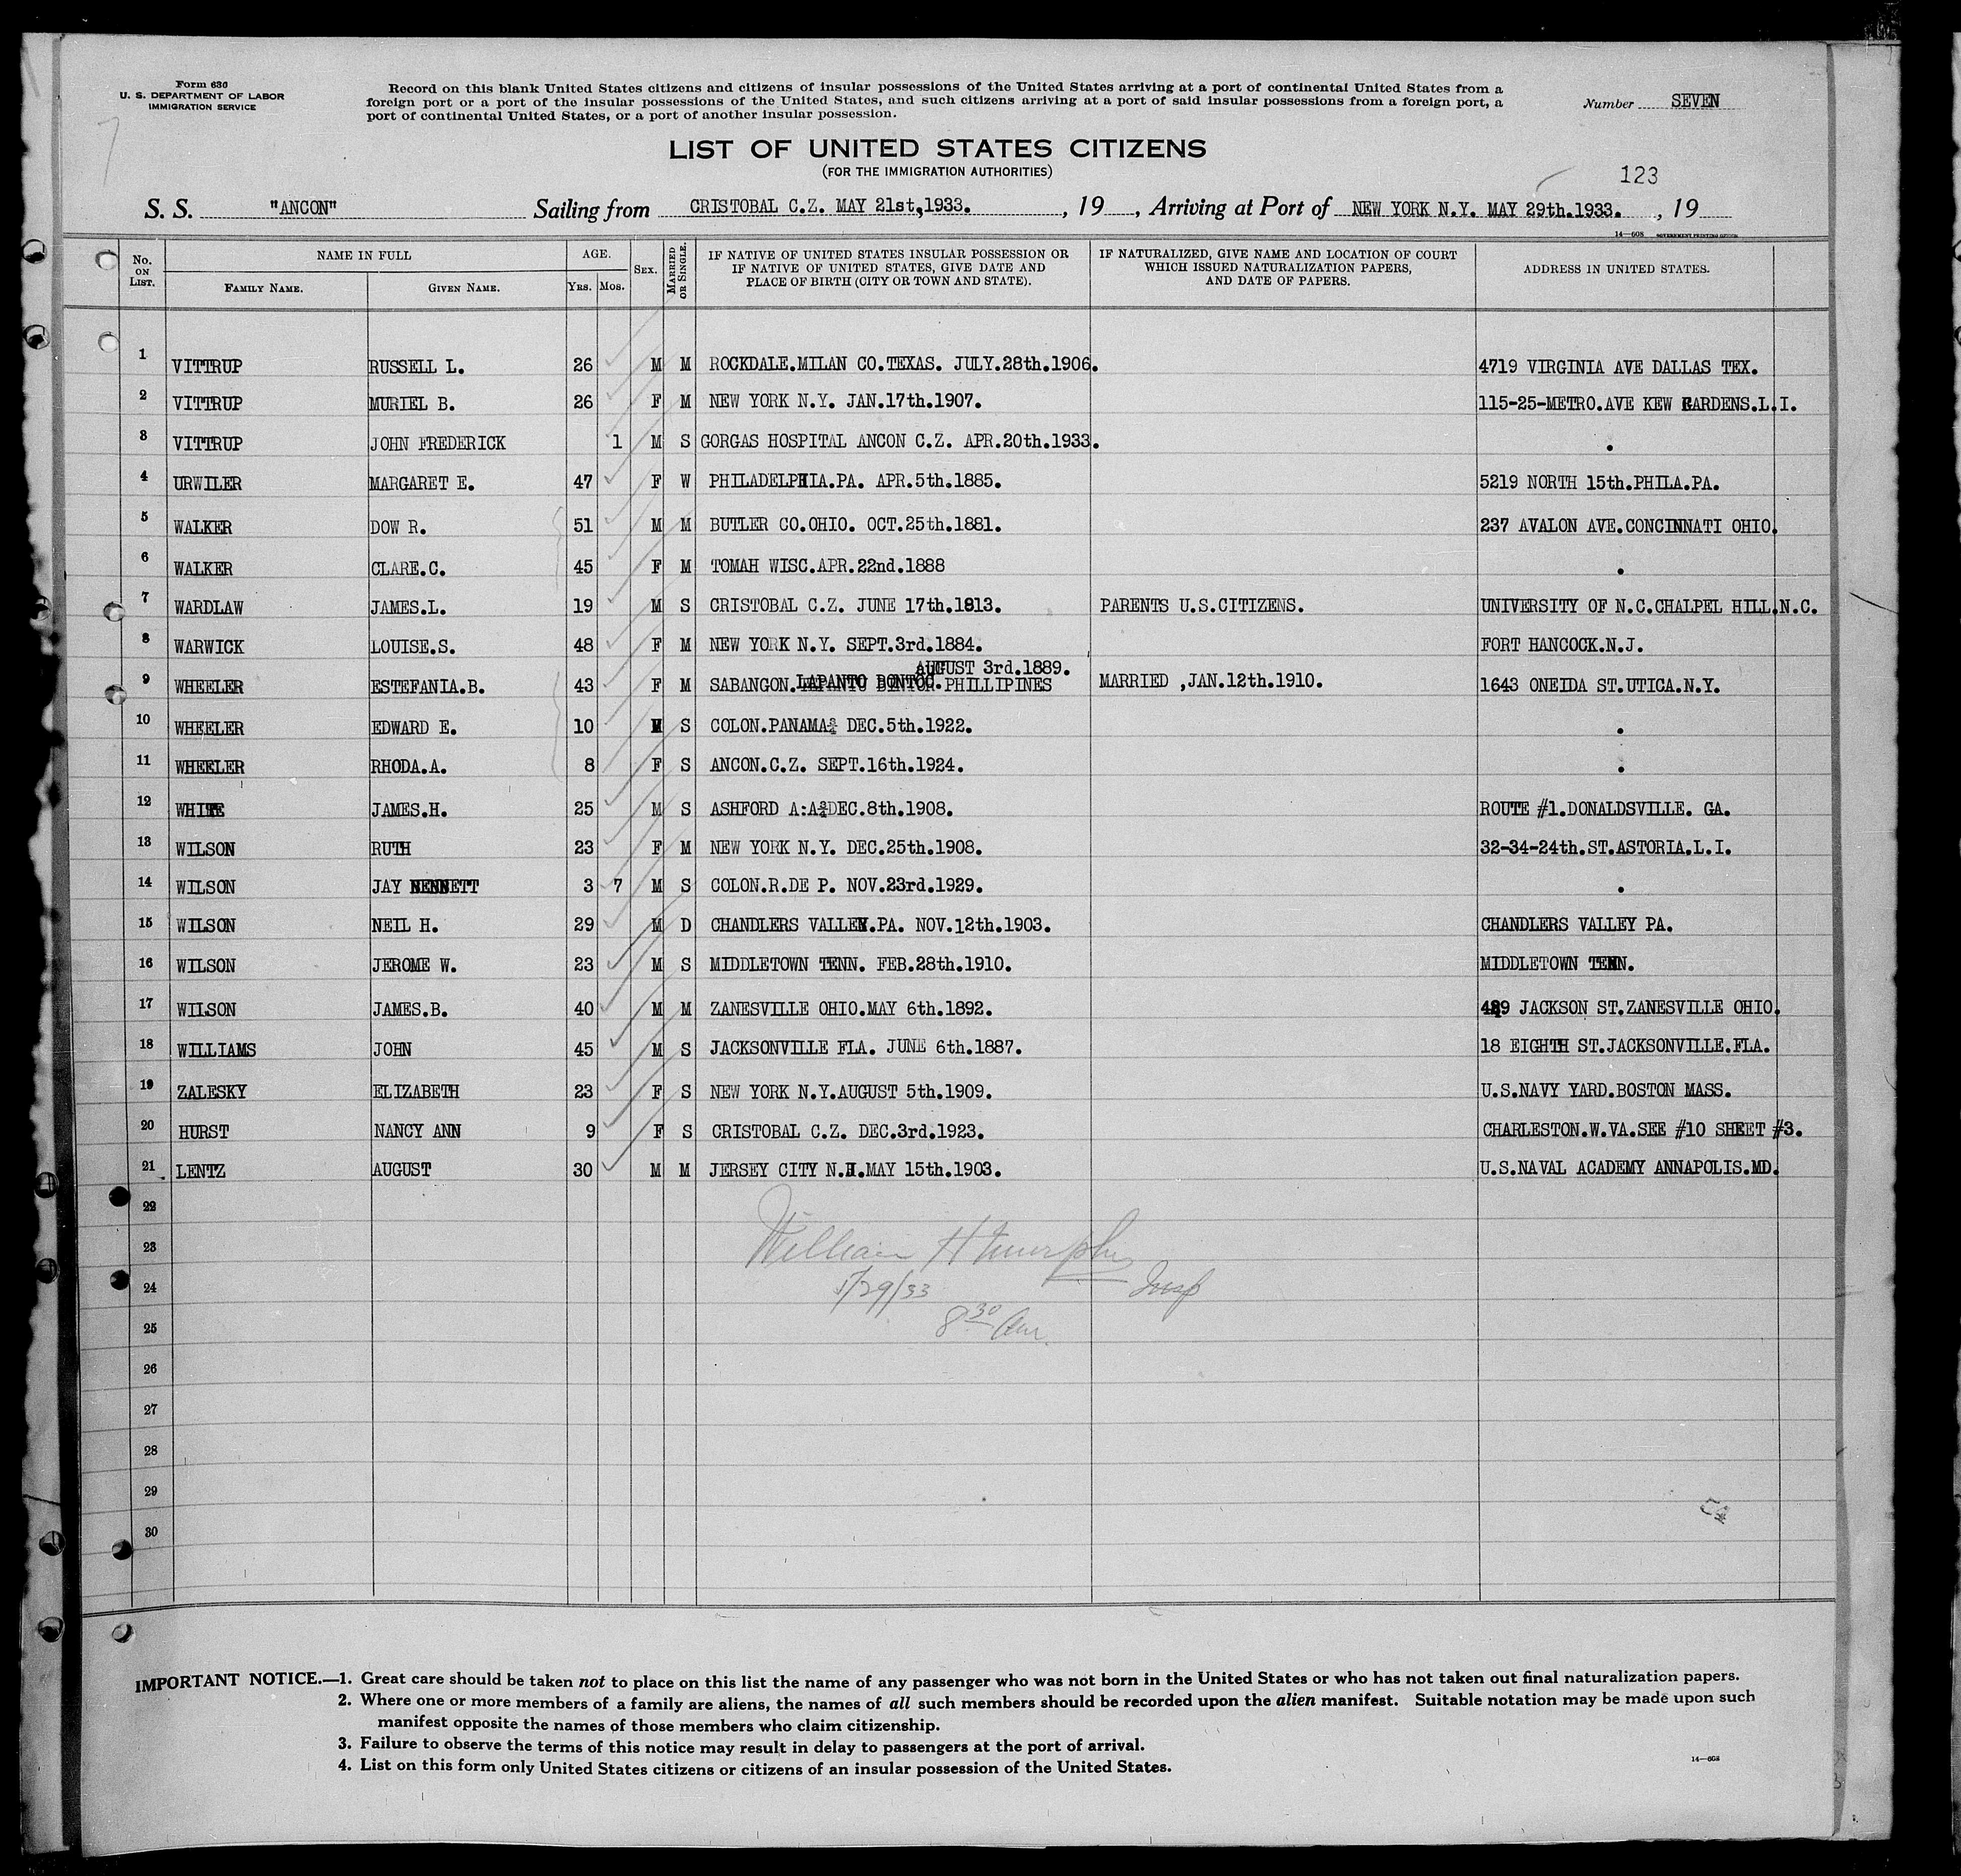 Form 636
U. S. DEPARTMENT OF LABOR
IMMIGRATION SERVICE
Record on this blank United States citizens and citizens of insular possessions of the United States arriving at a port of continental United States from a
foreign port or a port of the insular possessions of the United States, and such citizens arriving at a port of said insular possessions from a foreign port, a
port of continental United States, or a port of another insular possession.
Number SEVEN
7
LIST OF UNITED STATES CITIZENS
(FOR THE IMMIGRATION AUTHORITIES)
123
S. S. "ANCON" Sailing from CRISTOBAL C.Z. MAY 21st,1933. , 19 , Arriving at Port of NEW YORK N.Y. MAY 29th.1933. , 19
14—608 GOVERNMENT PRINTING OFFICE
No. ON LIST. NAME IN FULL AGE. SEX. MARRIED OR SINGLE. IF NATIVE OF UNITED STATES INSULAR POSSESSION OR IF NATIVE OF UNITED STATES, GIVE DATE AND PLACE OF BIRTH (CITY OR TOWN AND STATE). IF NATURALIZED, GIVE NAME AND LOCATION OF COURT WHICH ISSUED NATURALIZATION PAPERS, AND DATE OF PAPERS. ADDRESS IN UNITED STATES.
FAMILY NAME. GIVEN NAME. YRS. MOS.
1 VITTRUP RUSSELL L. 26 M M ROCKDALE.MILAN CO.TEXAS. JULY.28th.1906. 4719 VIRGINIA AVE DALLAS TEX.
2 VITTRUP MURIEL B. 26 F M NEW YORK N.Y. JAN.17th.1907. 115-25-METRO.AVE KEW GARDENS.L.I.
3 VITTRUP JOHN FREDERICK 1 M S GORGAS HOSPITAL ANCON C.Z. APR.20th.1933. .
4 URWILER MARGARET E. 47 F W PHILADELPHIA.PA. APR.5th.1885. 5219 NORTH 15th.PHILA.PA.
5 WALKER DOW R. 51 M M BUTLER CO.OHIO. OCT.25th.1881. 237 AVALON AVE.CONCINNATI OHIO.
6 WALKER CLARE.C. 45 F M TOMAH WISC.APR.22nd.1888 .
7 WARDLAW JAMES.L. 19 M S CRISTOBAL C.Z. JUNE 17th.1913. PARENTS U.S.CITIZENS. UNIVERSITY OF N.C.CHALPEL HILL.N.C.
8 WARWICK LOUISE.S. 48 F M NEW YORK N.Y. SEPT.3rd.1884. FORT HANCOCK.N.J.
AUGUST 3rd.1889.
9 WHEELER ESTEFANIA.B. 43 F M SABANGON.LAPANTO BONTOC.PHILLIPINES MARRIED ,JAN.12th.1910. 1643 ONEIDA ST.UTICA.N.Y.
10 WHEELER EDWARD E. 10 M S COLON.PANAMA. DEC.5th.1922. .
11 WHEELER RHODA.A. 8 F S ANCON.C.Z. SEPT.16th.1924. .
12 WHITE JAMES.H. 25 M S ASHFORD A:A.DEC.8th.1908. ROUTE #1.DONALDSVILLE. GA.
13 WILSON RUTH 23 F M NEW YORK N.Y. DEC.25th.1908. 32-34-24th.ST.ASTORIA.L.I.
14 WILSON JAY BENNETT 3 7 M S COLON.R.DE P. NOV.23rd.1929. .
15 WILSON NEIL H. 29 M D CHANDLERS VALLEY.PA. NOV.12th.1903. CHANDLERS VALLEY PA.
16 WILSON JEROME W. 23 M S MIDDLETOWN TENN. FEB.28th.1910. MIDDLETOWN TENN.
17 WILSON JAMES.B. 40 M M ZANESVILLE OHIO.MAY 6th.1892. JACKSON ST.ZANESVILLE OHIO.
18 WILLIAMS JOHN 45 M S JACKSONVILLE FLA. JUNE 6th.1887. 18 EIGHTH ST.JACKSONVILLE.FLA.
19 ZALESKY ELIZABETH 23 F S NEW YORK N.Y.AUGUST 5th.1909. U.S.NAVY YARD.BOSTON MASS.
20 HURST NANCY ANN 9 F S CRISTOBAL C.Z. DEC.3rd.1923. CHARLESTON.W.VA.SEE #10 SHEET #3.
21 LENTZ AUGUST 30 M M JERSEY CITY N.J.MAY 15th.1903. U.S.NAVAL ACADEMY ANNAPOLIS.MD.
22
23 William H Murphy
24 5/29/33 Insp
25 8 30 Am.
26
27
28
29
30
IMPORTANT NOTICE.—1. Great care should be taken not to place on this list the name of any passenger who was not born in the United States or who has not taken out final naturalization papers.
2. Where one or more members of a family are aliens, the names of all such members should be recorded upon the alien manifest. Suitable notation may be made upon such
manifest opposite the names of those members who claim citizenship.
3. Failure to observe the terms of this notice may result in delay to passengers at the port of arrival.
4. List on this form only United States citizens or citizens of an insular possession of the United States.
14—608